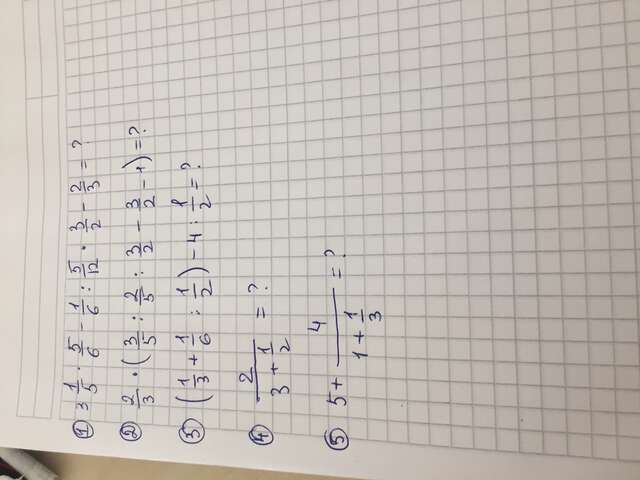 ① 3 1/5 · 5/6 - 1/6 : 5/12 · 3/2 - 2/3 = ?
② 2/3 · (3/5 : 2/5 : 3/2 - 3/2 - 1) = ?
③ (1/3 + 1/6 : 1/2) - 4 : 1/2 = ?
④ 2/(3 + 1/2) = ?
⑤ 5 + 4/(1 + 1/3) = ?